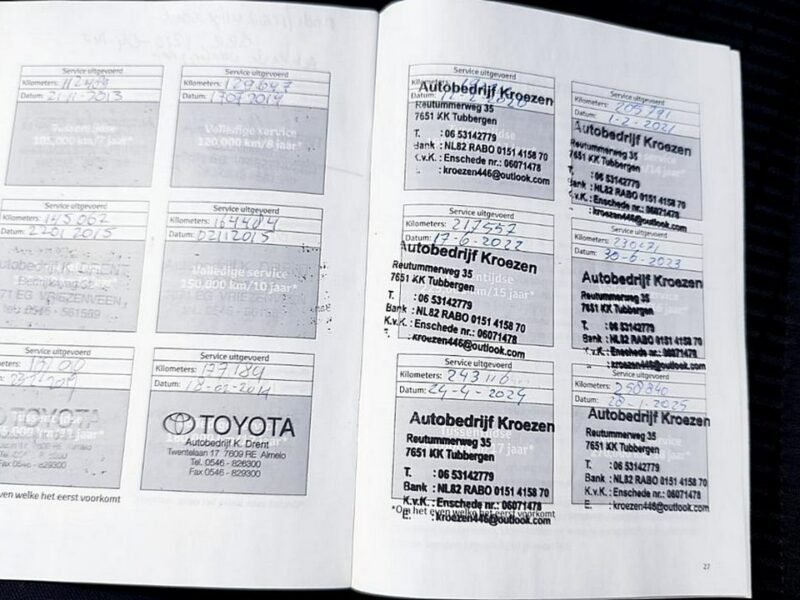 Service uitgevoerd
Kilometers: 112499
Datum: 21 11 2013
Tussentijdse
105.000 km/7 jaar*
Service uitgevoerd
Kilometers: 129.647
Datum:
Volledige service
120.000 km/8 jaar*
Service uitgevoerd
Kilometers: 145.062
Datum: 22 01 2015
Autobedrijf K. DRENT
VRIEZENVEEN
0546 - 561589
Service uitgevoerd
Kilometers: 164484
Datum: 02112015
Volledige service
150.000 km/10 jaar*
VRIEZENVEEN
Service uitgevoerd
Kilometers:
Datum:
Tussentijdse
jaar*
TOYOTA
Autobedrijf K. Drent
Twentelaan 17 7609 RE Almelo
Tel. 0546 - 826300
Fax 0546 - 829300
Service uitgevoerd
Kilometers: 177184
Datum:
TOYOTA
Autobedrijf K. Drent
Twentelaan 17 7609 RE Almelo
Tel. 0546 - 826300
Fax 0546 - 829300
even welke het eerst voorkomt
Service uitgevoerd
Kilometers:
Datum:
Autobedrijf Kroezen
Reutummerweg 35
7651 KK Tubbergen
T. : 06 53142779
Bank : NL82 RABO 0151 4158 70
K.v.k. : Enschede nr.: 06071478
: kroezen446@outlook.com
Service uitgevoerd
Kilometers:
Datum: 1-2-2021
Autobedrijf Kroezen
Reutummerweg 35
7651 KK Tubbergen
T. : 06 53142779
Bank : NL82 RABO 0151 4158 70
K.v.k. : Enschede nr.: 06071478
: kroezen446@outlook.com
Service uitgevoerd
Kilometers: 217557
Datum: 17-6-2022
Autobedrijf Kroezen
Reutummerweg 35
7651 KK Tubbergen
T. : 06 53142779
Bank : NL82 RABO 0151 4158 70
K.v.k. : Enschede nr.: 06071478
: kroezen446@outlook.com
Service uitgevoerd
Kilometers:
Datum: 30-6-2023
Autobedrijf Kroezen
Reutummerweg 35
7651 KK Tubbergen
T. : 06 53142779
Bank : NL82 RABO 0151 4158 70
K.v.k. : Enschede nr.: 06071478
: kroezen446@outlook.com
Service uitgevoerd
Kilometers: 243116
Datum: 24-4-2024
Autobedrijf Kroezen
Reutummerweg 35
7651 KK Tubbergen
T. : 06 53142779
Bank : NL82 RABO 0151 4158 70
K.v.k. : Enschede nr.: 06071478
E. : kroezen446@outlook.com
*Om het even welke het eerst voorkomt
Service uitgevoerd
Kilometers: 250840
Datum: 28-1-2025
Autobedrijf Kroezen
Reutummerweg 35
7651 KK Tubbergen
T. : 06 53142779
Bank : NL82 RABO 0151 4158 70
K.v.k. : Enschede nr.: 06071478
E. : kroezen446@outlook.com
27